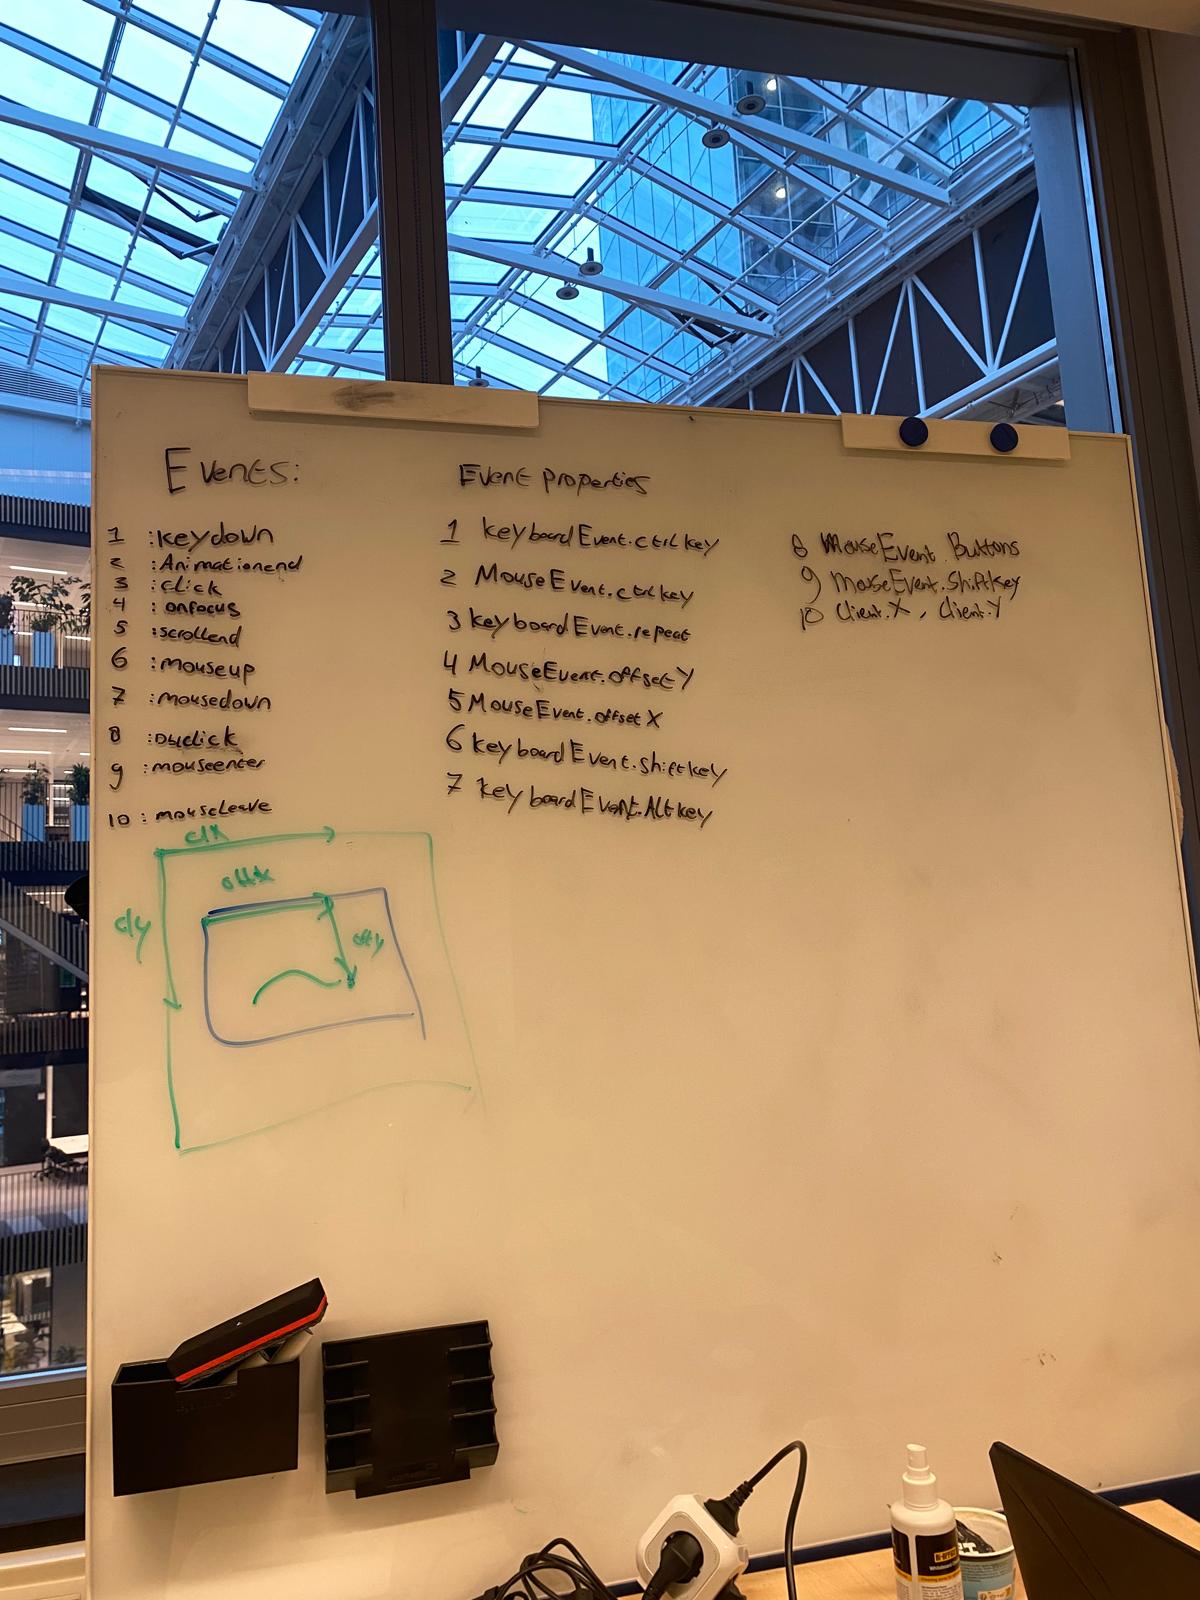 Events:
1 :keydown
2 :Animationend
3 :click
4 :onfocus
5 :scrollend
6 :mouseup
7 :mousedown
8 :Dblclick
9 :mouseenter
10 :mouseleave
Event properties
1 keyboardEvent.ctrlkey
2 MouseEvent.ctrlkey
3 keyboardEvent.repeat
4 MouseEvent.offsetY
5 MouseEvent.offsetX
6 keyboardEvent.shiftkey
7 keyboardEvent.Altkey
8 MouseEvent.Buttons
9 MouseEvent.shiftkey
10 Client.X, Client.Y
clX
offX
clY
offy